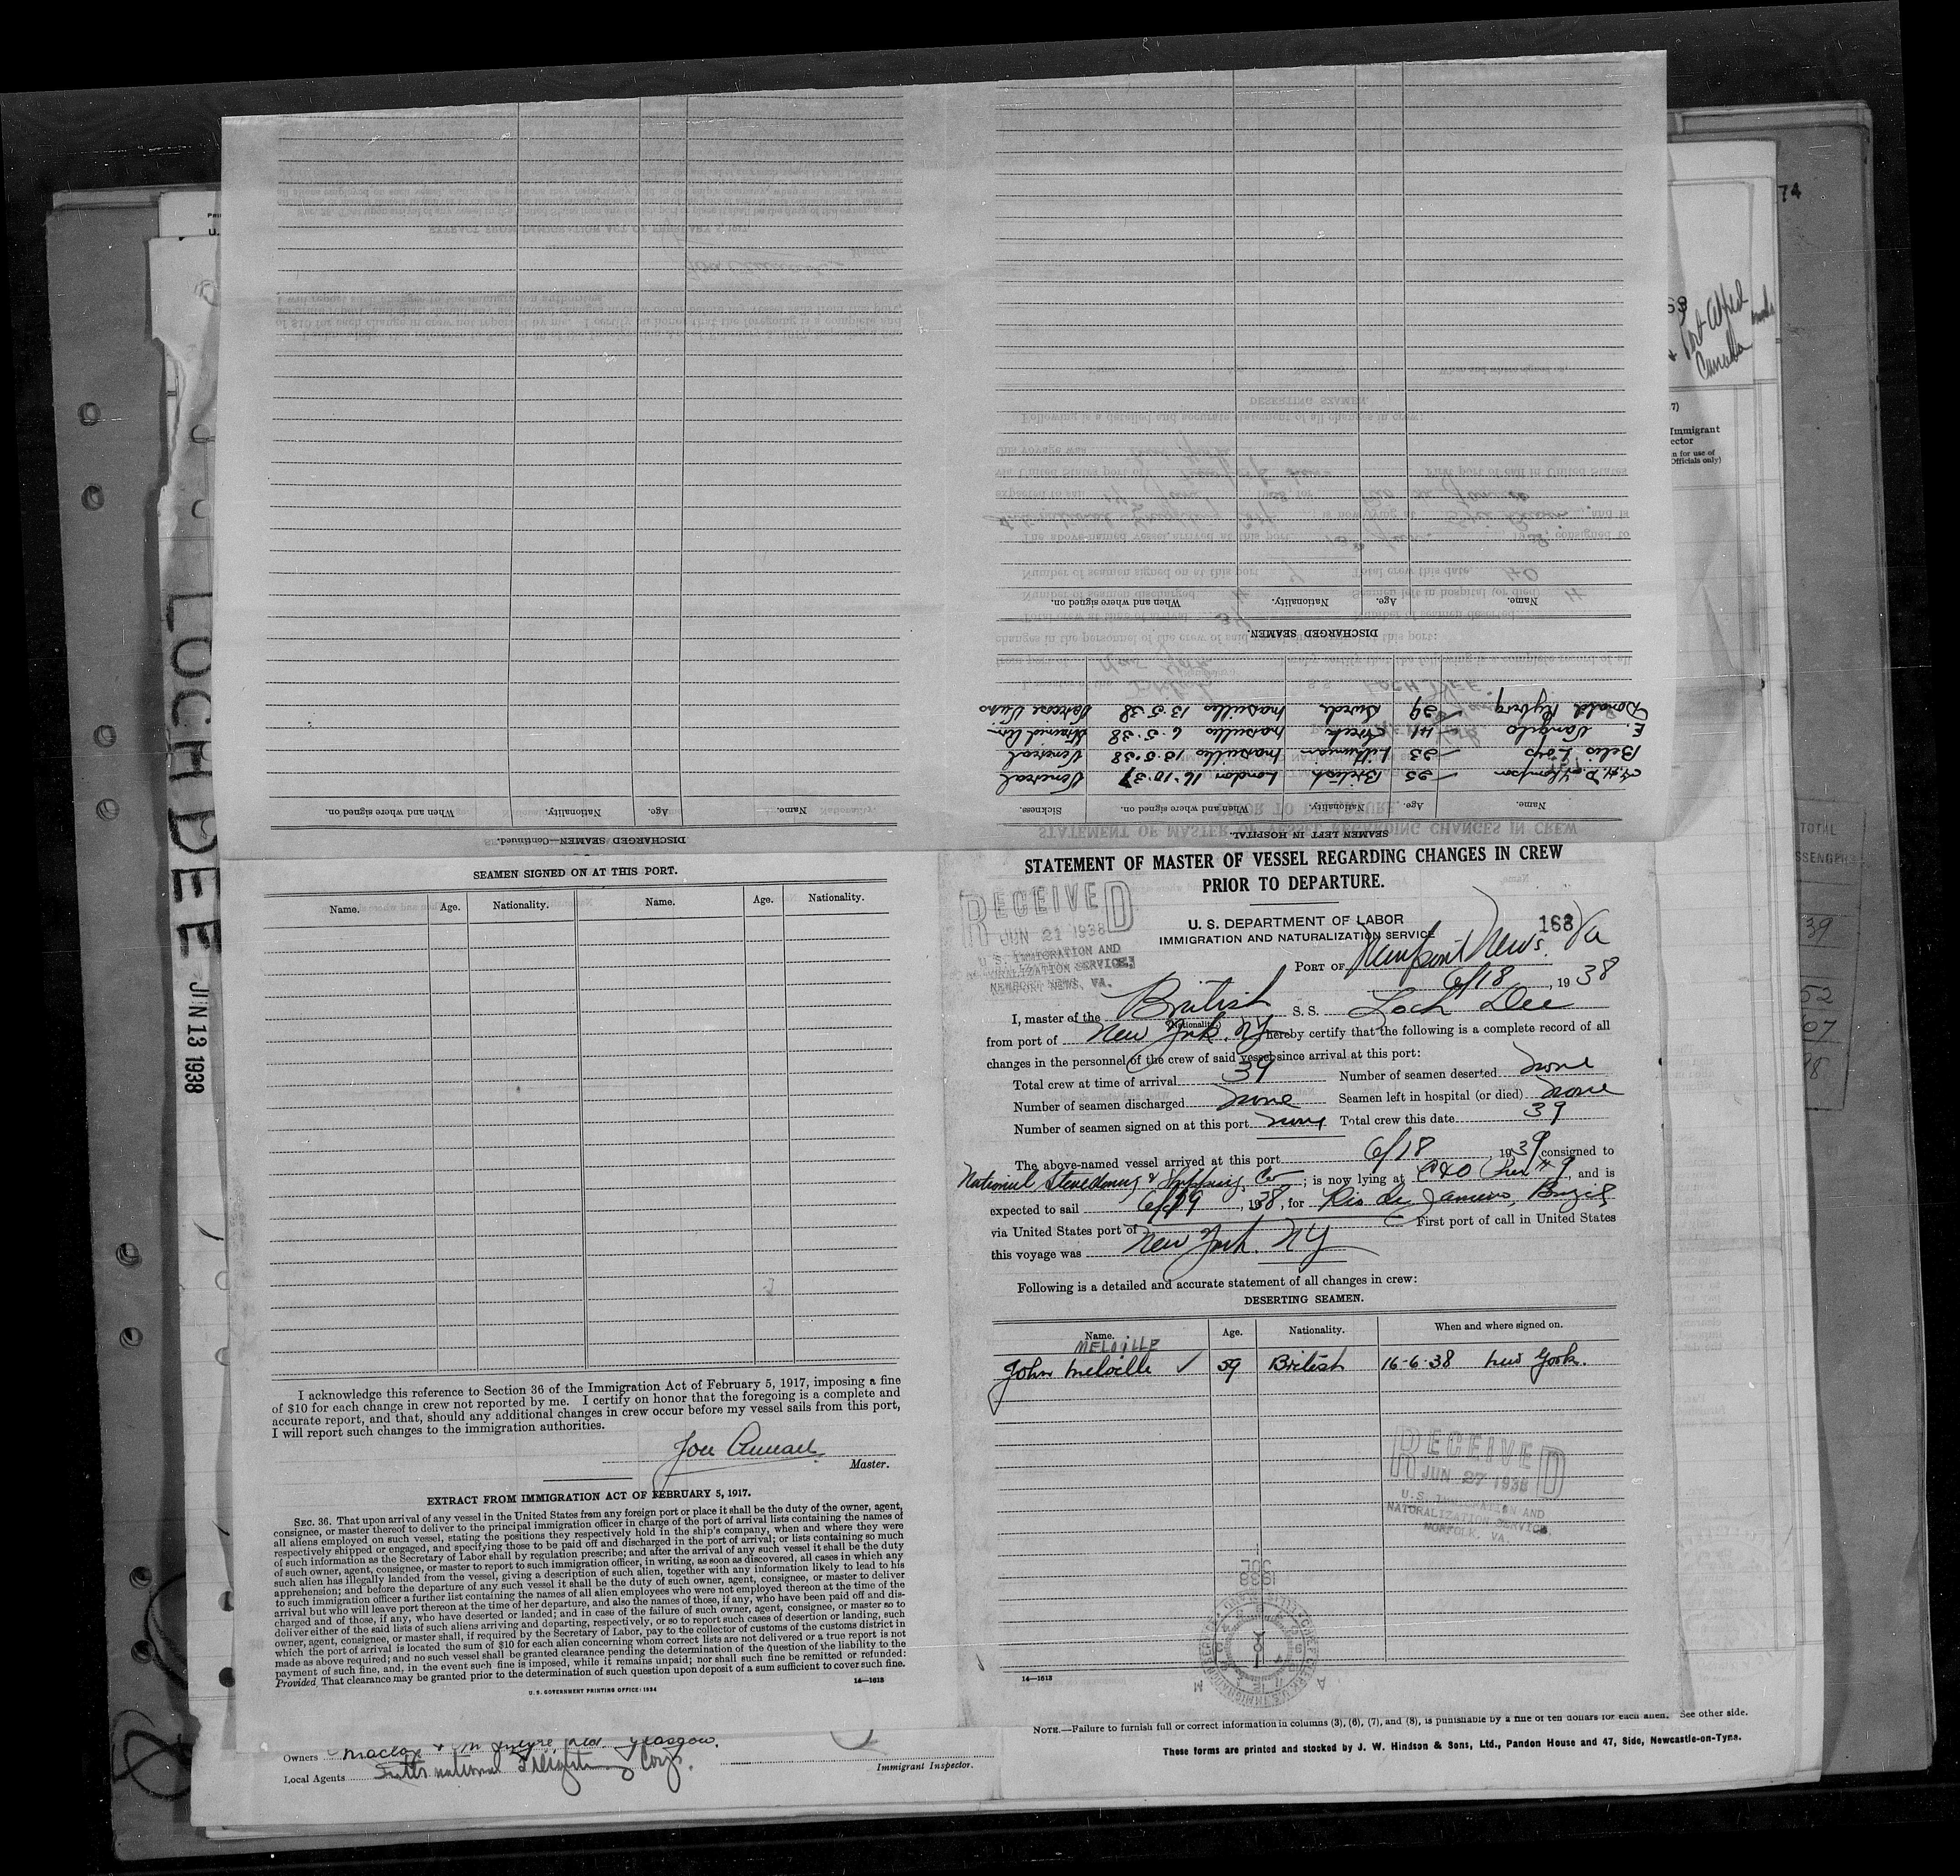 LOCH DEE
JUN 13 1938
74
Port Alfred
Canada
Immigrant
TOTAL
39
52
DISCHARGED SEAMEN—Continued.
Name. Age. Nationality. When and where signed on.
SEAMEN LEFT IN HOSPITAL.
Name. Age. Nationality. When and where signed on. Sickness.
Thompson 25 British London 16-10-37 Venereal
23 Marseilles 13-5-38 Venereal
E. 41 Greek Marseilles 6-5-38
Donald 29 Swede Marseilles 13-5-38 Varicose Veins
DISCHARGED SEAMEN.
Name. Age. Nationality. When and where signed on.
SEAMEN SIGNED ON AT THIS PORT.
Name. Age. Nationality. Name. Age. Nationality.
I acknowledge this reference to Section 36 of the Immigration Act of February 5, 1917, imposing a fine
of $10 for each change in crew not reported by me. I certify on honor that the foregoing is a complete and
accurate report, and that, should any additional changes in crew occur before my vessel sails from this port,
I will report such changes to the immigration authorities.
Master.
EXTRACT FROM IMMIGRATION ACT OF FEBRUARY 5, 1917.
SEC. 36. That upon arrival of any vessel in the United States from any foreign port or place it shall be the duty of the owner, agent,
consignee, or master thereof to deliver to the principal immigration officer in charge of the port of arrival lists containing the names of
all aliens employed on such vessel, stating the positions they respectively hold in the ship's company, when and where they were
respectively shipped or engaged, and specifying those to be paid off and discharged in the port of arrival; or lists containing so much
of such information as the Secretary of Labor shall by regulation prescribe; and after the arrival of any such vessel it shall be the duty
of such owner, agent, consignee, or master to report to such immigration officer, in writing, as soon as discovered, all cases in which any
such alien has illegally landed from the vessel, giving a description of such alien, together with any information likely to lead to his
apprehension; and before the departure of any such vessel it shall be the duty of such owner, agent, consignee, or master to deliver
to such immigration officer a further list containing the names of all alien employees who were not employed thereon at the time of the
arrival but who will leave port thereon at the time of her departure, and also the names of those, if any, who have been paid off and dis-
charged and of those, if any, who have deserted or landed; and in case of the failure of such owner, agent, consignee, or master so to
deliver either of the said lists of such aliens arriving and departing, respectively, or so to report such cases of desertion or landing, such
owner, agent, consignee, or master shall, if required by the Secretary of Labor, pay to the collector of customs of the customs district in
which the port of arrival is located the sum of $10 for each alien concerning whom correct lists are not delivered or a true report is not
made as above required; and no such vessel shall be granted clearance pending the determination of the question of the liability to the
payment of such fine, and, in the event such fine is imposed, while it remains unpaid; nor shall such fine be remitted or refunded:
Provided, That clearance may be granted prior to the determination of such question upon deposit of a sum sufficient to cover such fine.
U. S. GOVERNMENT PRINTING OFFICE: 1934
14—1613
STATEMENT OF MASTER OF VESSEL REGARDING CHANGES IN CREW
PRIOR TO DEPARTURE.
RECEIVED
JUN 21 1938
U. S. IMMIGRATION AND
NATURALIZATION SERVICE,
NEWPORT NEWS, VA.
U. S. DEPARTMENT OF LABOR
IMMIGRATION AND NATURALIZATION SERVICE
168
PORT OF Newport News. Va
6/18, 1938
I, master of the British S. S. Loch Dee
(Nationality)
from port of New York. NY hereby certify that the following is a complete record of all
changes in the personnel of the crew of said vessel since arrival at this port:
Total crew at time of arrival 39 Number of seamen deserted none
Number of seamen discharged none Seamen left in hospital (or died) none
Number of seamen signed on at this port none Total crew this date 39
The above-named vessel arrived at this port 6/18, 1939 consigned to
National Stevedoring & Shipping Co; is now lying at C&O Pier #9, and is
expected to sail 6/19, 1938, for Rio de Janeiro, Brazil
via United States port of First port of call in United States
this voyage was New York. NY
Following is a detailed and accurate statement of all changes in crew:
DESERTING SEAMEN.
Name. Age. Nationality. When and where signed on.
MELVILLE
John Melville ✓ 59 British 16-6-38 New York.
RECEIVED
JUN 27 1938
U. S. IMMIGRATION AND
NATURALIZATION SERVICE,
NORFOLK, VA.
JUL
1938
14—1613
NOTE.—Failure to furnish full or correct information in columns (3), (6), (7), and (8), is punishable by a fine of ten dollars for each alien. See other side.
These forms are printed and stocked by J. W. Hindson & Sons, Ltd., Pandon House and 47, Side, Newcastle-on-Tyne.
Owners Maclay & McIntyre Ltd. Glasgow.
Local Agents International Freighting Corp.
Immigrant Inspector.